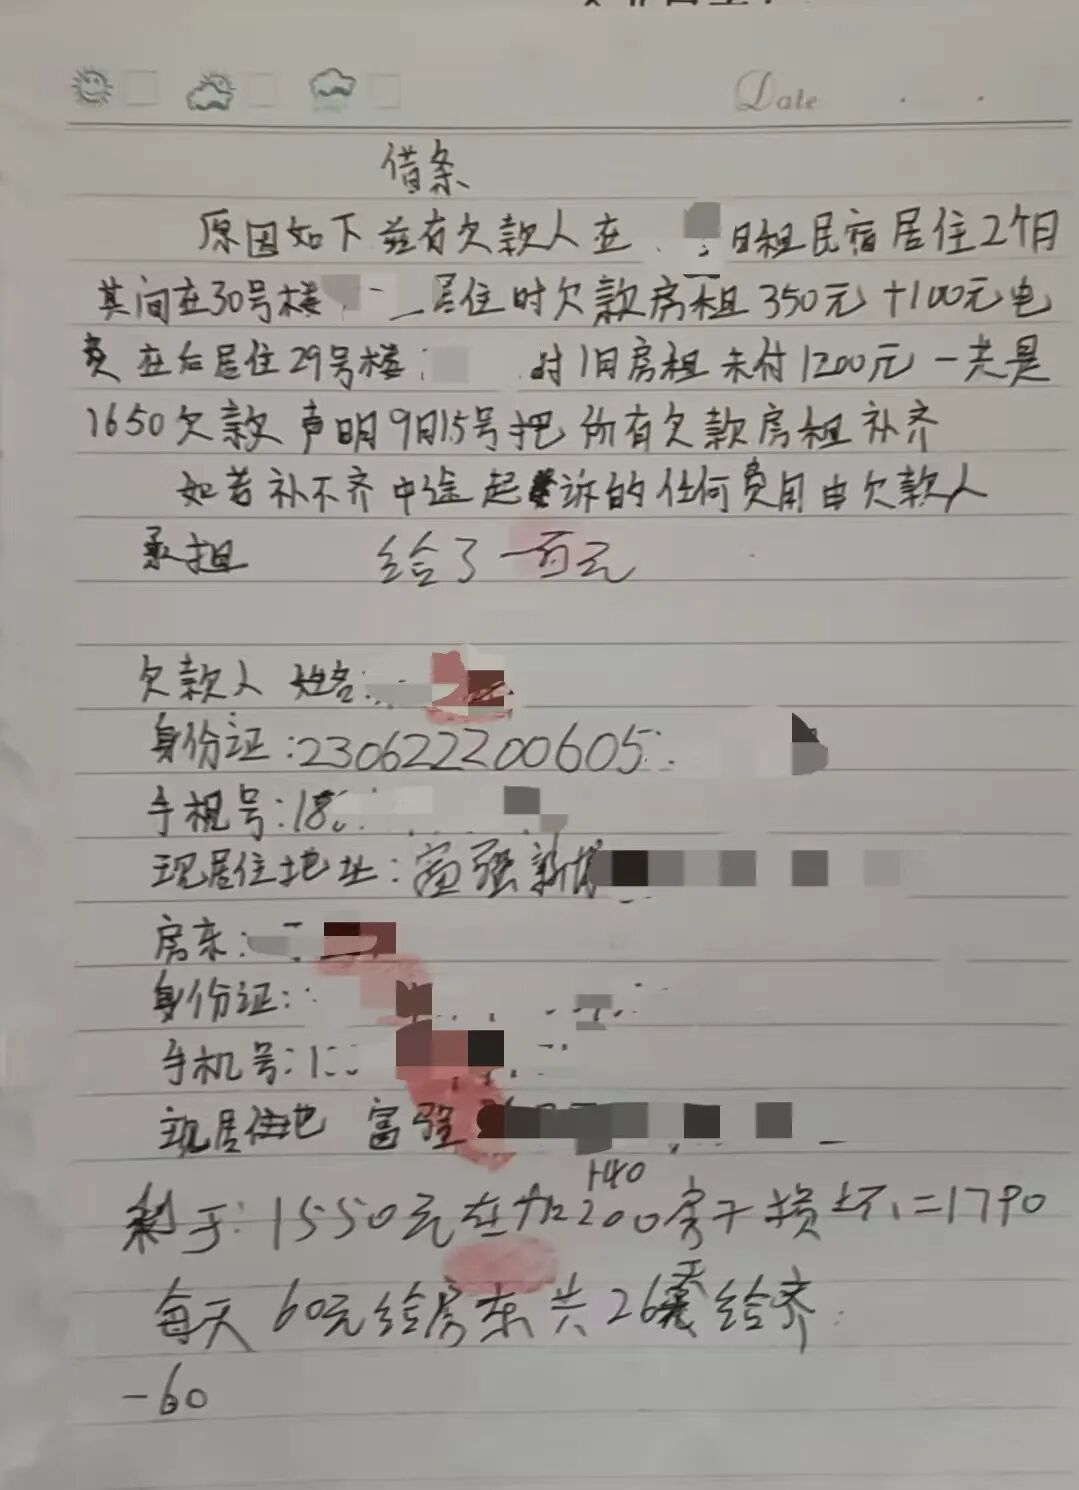 Date
借条
原因如下兹有欠款人在 日租民宿居住2个月
其间在30号楼 居住时欠款房租350元+100元电
费在后居住29号楼 时1月房租未付1200元一共是
1650欠款声明9月15号把所有欠款房租补齐
如若补不齐中途起诉的任何费用由欠款人
承担 给了一百元
欠款人 姓名:
身份证:230622200605
手机号:18
现居住地址:富强新
房东:
身份证:
手机号:1
现居住地 富强
+40
剩于:1550元在加200房子损坏=1790
每天60元给房东共26天给齐
-60